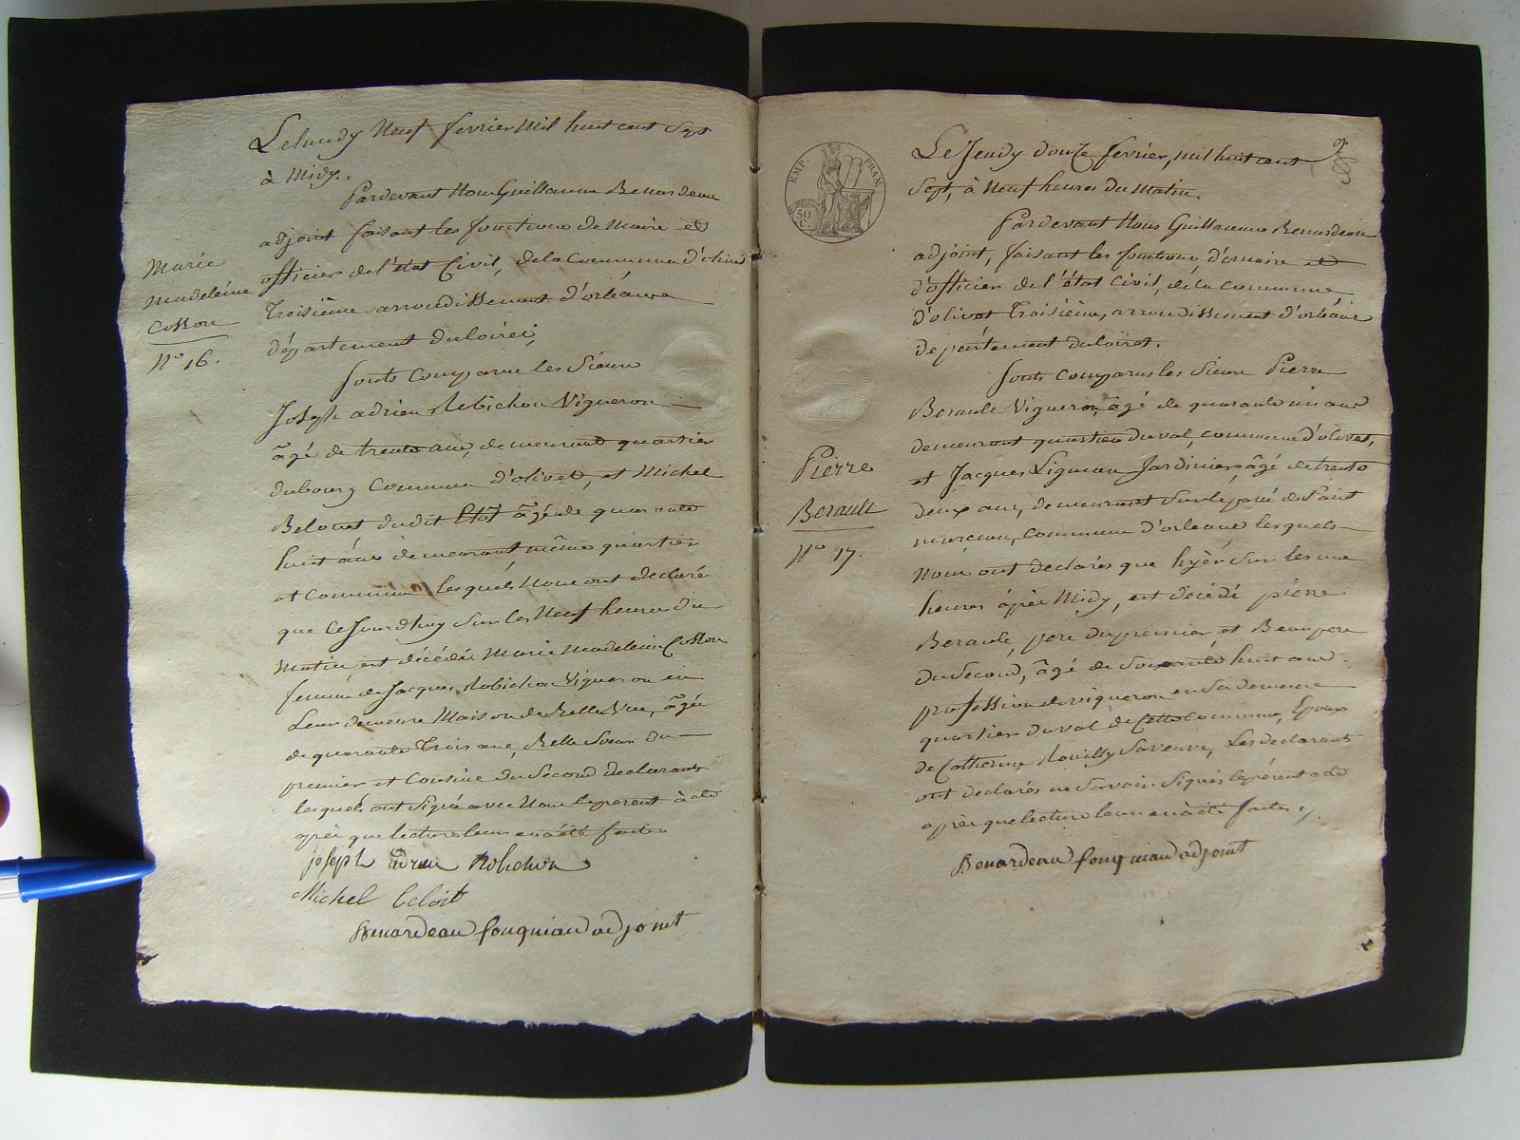 Le lundy Neuf fevrier Mil huit cent Sept
à Midy.
Pardevant Nous Guillaume Benardeau
adjoint faisant les fonctions de Maire et
officier de l'état Civil, de la Commune d'olivet
Troisième arrondissement d'orléans
département du loiret,
Marie
Madeleine
Cosson
N° 16.
Sont Comparu les Sieurs
Joseph adrien Robichon Vigneron
âgé de trente ans, demeurant quartier
du bourg Commune d'olivet, et Michel
Belouet dudit Etat âgé de quarante
huit ans demeurant même quartier
et Commune lesquels Nous ont declaré
que Cejourdhuy Sur les Neuf heures du
Matin, est décédée Marie Madeleine Cosson
femme de Jacques Robichon Vigneron en
Leur demeure Maison de Belle Vue, âgée
de quarante Trois ans, Belle Soeur du
premier et Cousine du Second declarants
lesquels ont Signé avec Nous le present acte
après que lecture leur en a été faite
joseph adrien Robichon
Michel beloit
Benardeau fouqniau adjoint
9
EMP. FRAN.
50
C.
Le Jeudy douze fevrier, mil huit cent
Sept, à Neuf heures du Matin.
Pardevant Nous Guillaume Benardeau
adjoint, faisant les fonctions de maire et
d'officier de l'état Civil, de la Commune
d'olivet Troisième, arrondissement d'orléans
departement du loiret.
Sont Comparus les Sieurs Pierre
Berault Vigneron, âgé de quarante un ans
demeurant quartier du val, commune d'olivet,
et Jacques Ligneau Jardinier âgé de trente
deux ans, demeurant Sur le pavé de Saint
marceau, commune d'orleans lesquels
Nous ont declarés que hyer Sur les une
heures après Midy, est décédé pierre
Berault, pere du premier et Beaupere
du Second, âgé de Soixante huit ans
profession de vigneron en Sa demeure
quartier du val de Cette Commune, Epoux
de Catherine Rouilly Sa veuve, Les declarants
ont declarés ne Savoir Signer le present acte
après que lecture leur en a été faite.
Pierre
Berault
N° 17.
Benardeau fouqniau adjoint